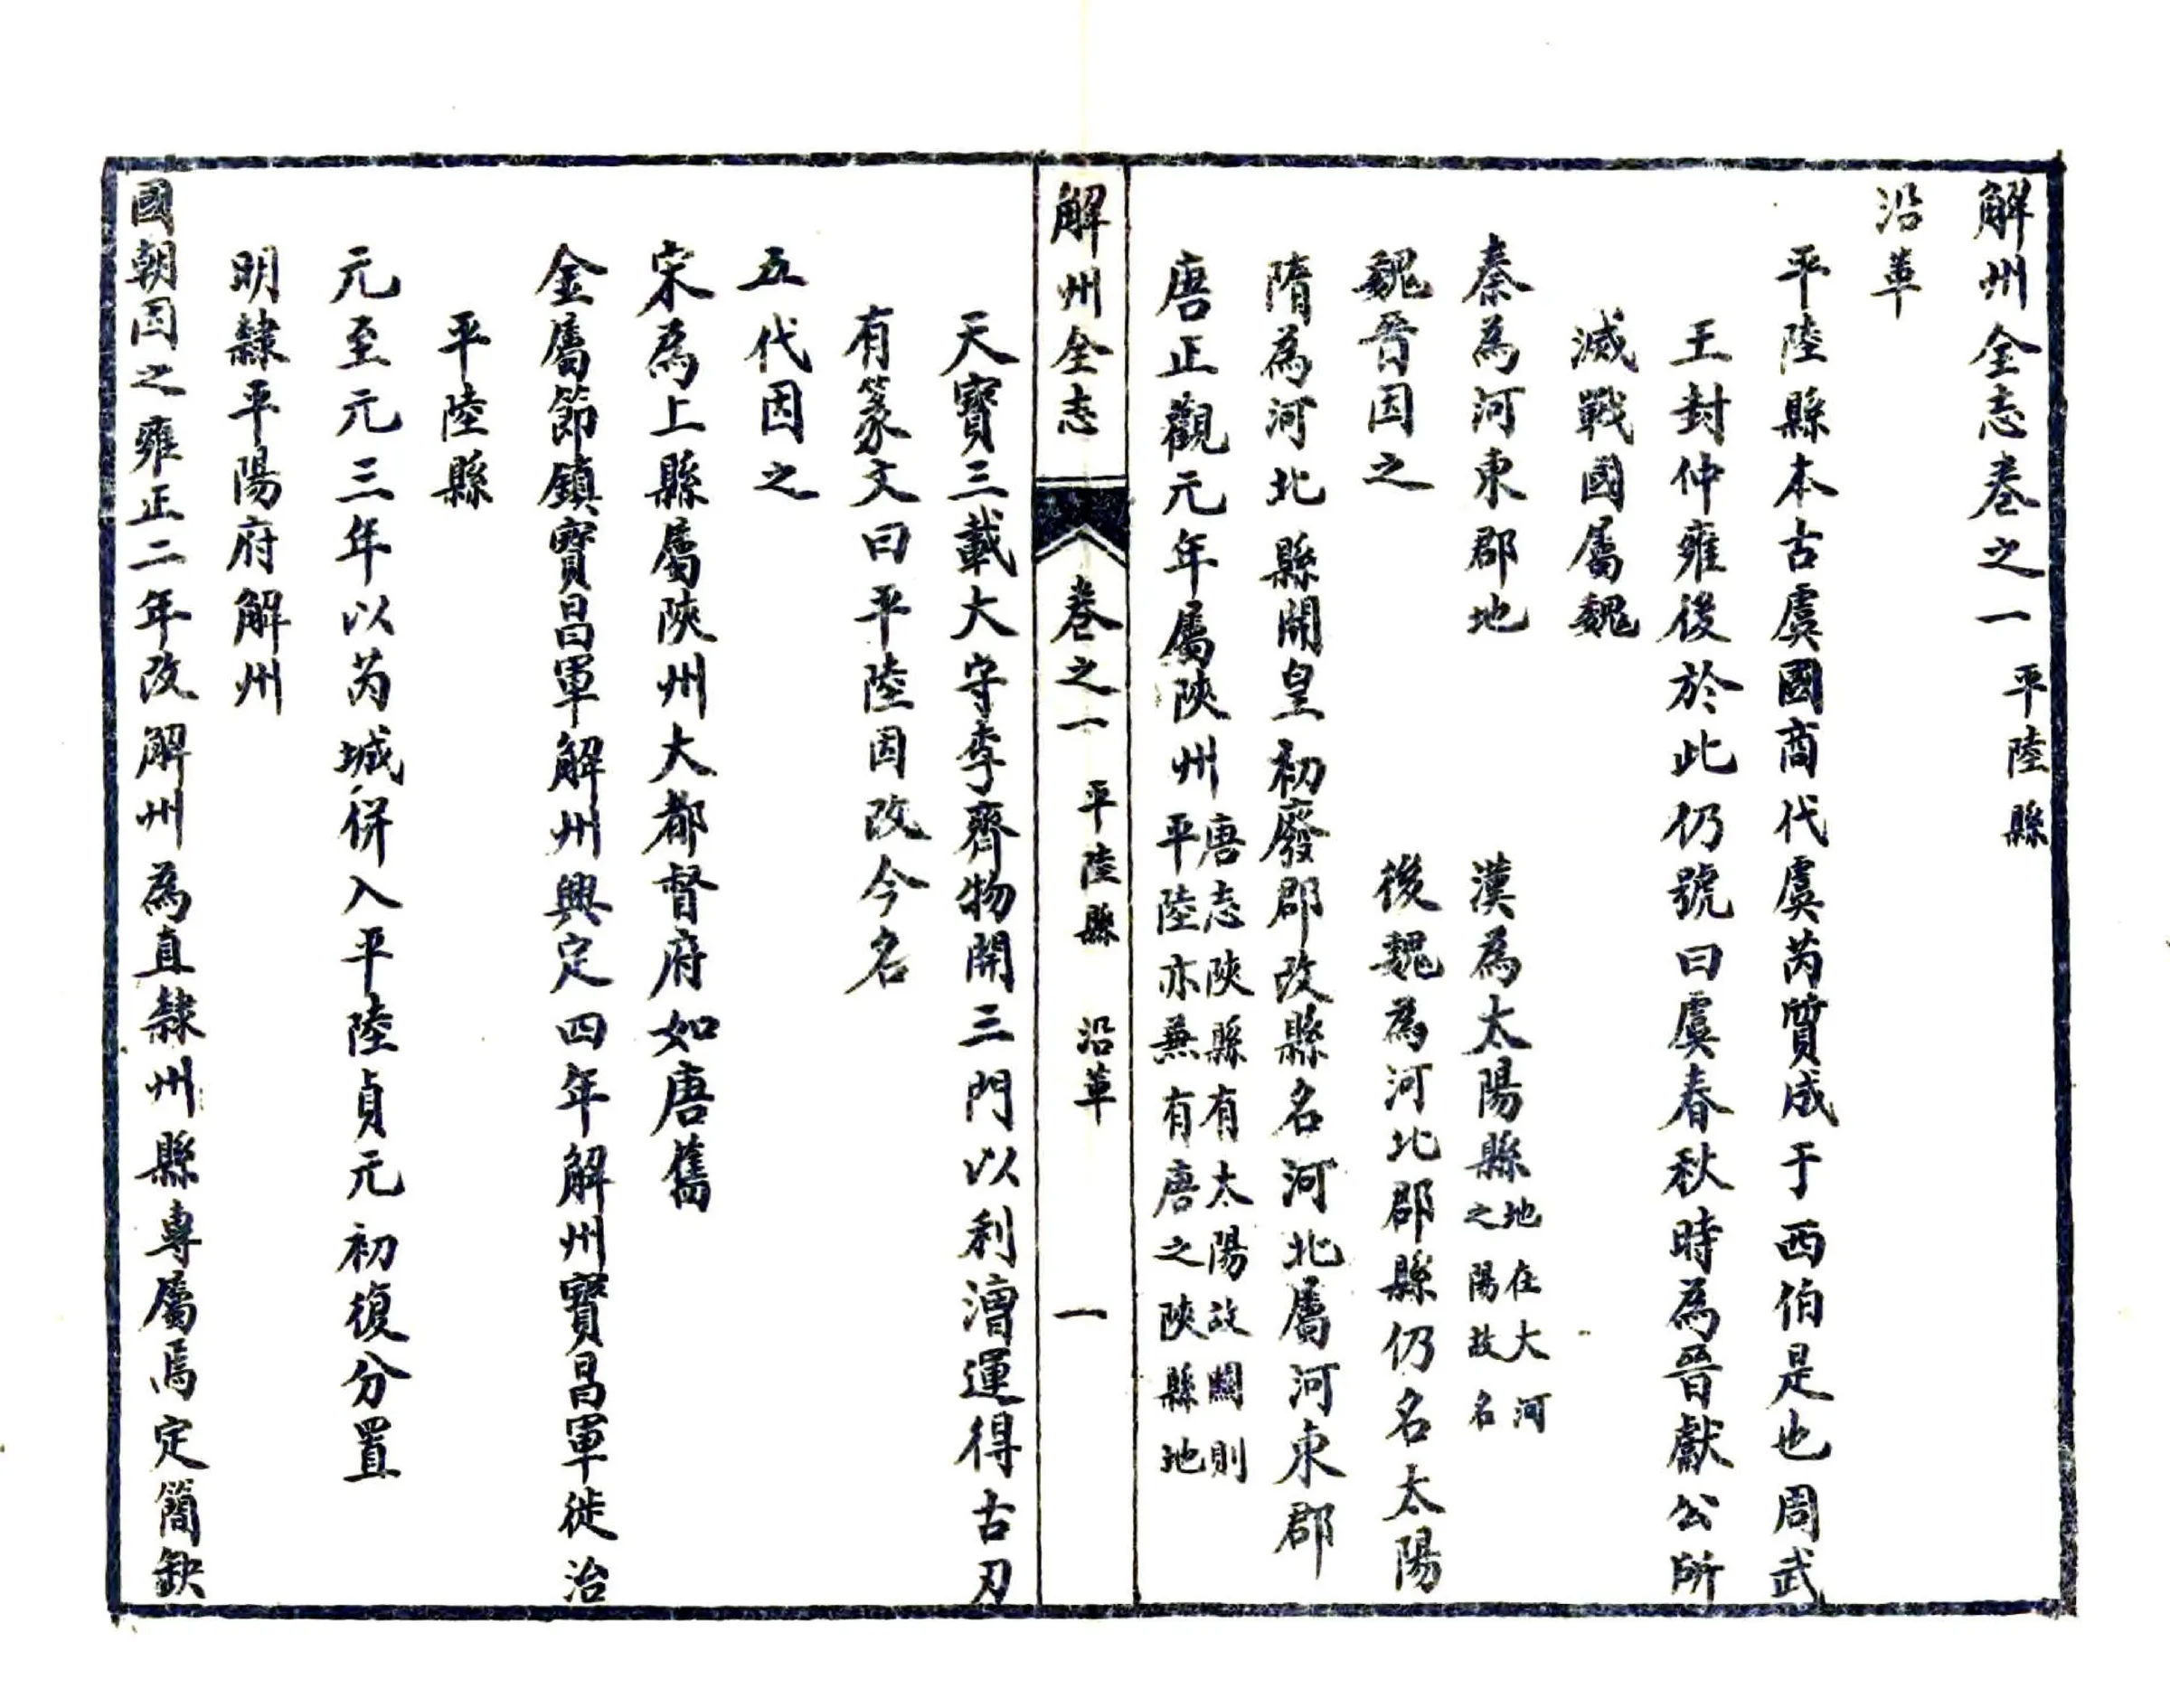 解州全志卷之一 平陸縣
沿革
平陸縣本古虞國商代虞芮質成于西伯是也周武
王封仲雍後於此仍號曰虞春秋時為晉獻公所
滅戰國屬魏
秦為河東郡地 漢為太陽縣地在大河之陽故名
魏晉因之 後魏為河北郡縣仍名太陽
隋為河北縣開皇初廢郡改縣名河北屬河東郡
唐正觀元年屬陝州唐志陝縣有太陽故關則平陸亦兼有唐之陝縣地
解州全志 卷之一 平陸縣 沿革 一
天寶三載大守李齊物開三門以利漕運得古刃
有篆文曰平陸因改今名
五代因之
宋為上縣屬陝州大都督府如唐舊
金屬節鎮寶昌軍解州興定四年解州寶昌軍徙治
平陸縣
元至元三年以芮城併入平陸貞元初復分置
明隸平陽府解州
國朝因之雍正二年改解州為直隸州縣專屬焉定簡缺